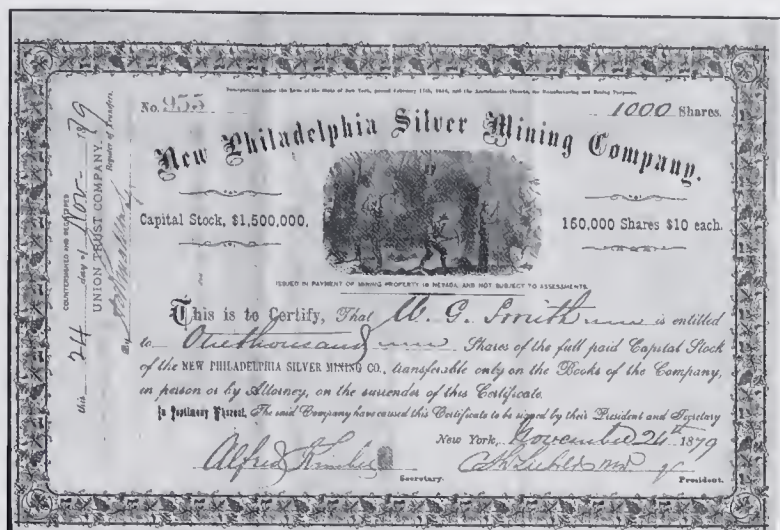 Incorporated under the Laws of the State of New York, passed February 17th, 1848, and the Amendments thereto, for Manufacturing and Mining Purposes.
No. 955
1000 Shares.
New Philadelphia Silver Mining Company.
Capital Stock, $1,500,000.
150,000 Shares $10 each.
ISSUED IN PAYMENT OF MINING PROPERTY IN NEVADA, AND NOT SUBJECT TO ASSESSMENTS.
This is to Certify, That W. G. Smith is entitled
to One thousand Shares of the full paid Capital Stock
of the NEW PHILADELPHIA SILVER MINING CO., transferable only on the Books of the Company,
in person or by Attorney, on the surrender of this Certificate.
In Testimony Whereof, The said Company have caused this Certificate to be signed by their President and Secretary
New York, November 24th 1879
Alfred
Secretary.
President.
COUNTERSIGNED AND REGISTERED
this 24 day of Nov 1879
UNION TRUST COMPANY,
Register of Transfers.
By